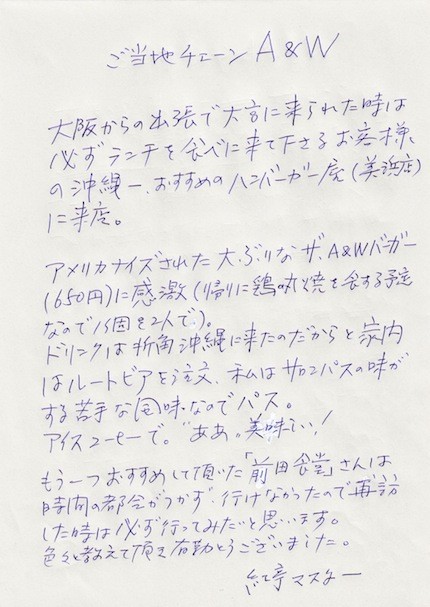 ご当地チェーン A&W
大阪からの出張で大宮に来られた時は
必ずランチを食べに来て下さるお客様、
の沖縄一、おすすめのハンバーガー店(美浜店)
に来店。
アメリカナイズされた大ぶりな ザ、A&Wバーガー
(650円)に感激(帰りに鶏肉焼を食する予定
なので1個を2人で)。
ドリンクは折角沖縄に来たのだからと家内
はルートビアを注文、私はサロンパスの味が
する苦手な風味なのでパス。
アイスコーヒーで。"ああ。美味しい!
もう一つおすすめして頂いた「前田食堂」さんは
時間の都合がつかず、行けなかったので再訪
した時は必ず行ってみたいと思います。
色々と教えて頂き有難とうございました。
紅亭マスター